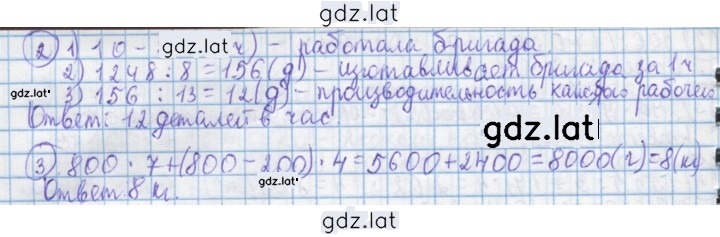 gdz.lat
2 1) 10 - gdz.lat ч) - работала бригада
2) 1248 : 8 = 156 (д) - изготавливает бригада за 1 ч
gdz.lat 3) 156 : 13 = 12 (д) - производительность каждого рабочего
Ответ: 12 деталей в час. gdz.lat
3 800 · 7 + (800 - 200) · 4 = 5600 + 2400 = 8000 (г) = 8 (кг)
Ответ 8 кг. gdz.lat
gdz.lat